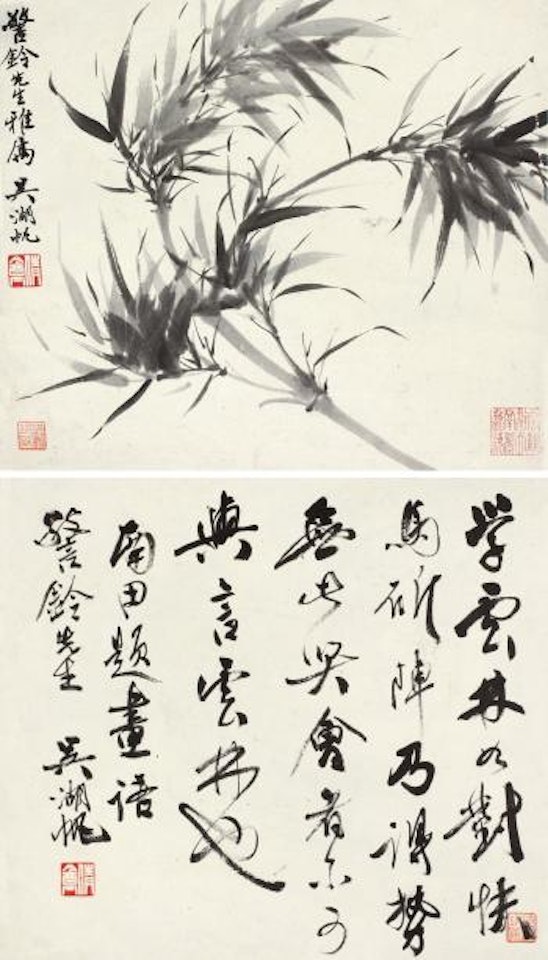 警鈴先生雅屬 吳湖帆
學雲林如對快
馬斫陣乃得勢
無此興會者不可
與言雲林也
南田題畫語
警鈴先生 吳湖帆